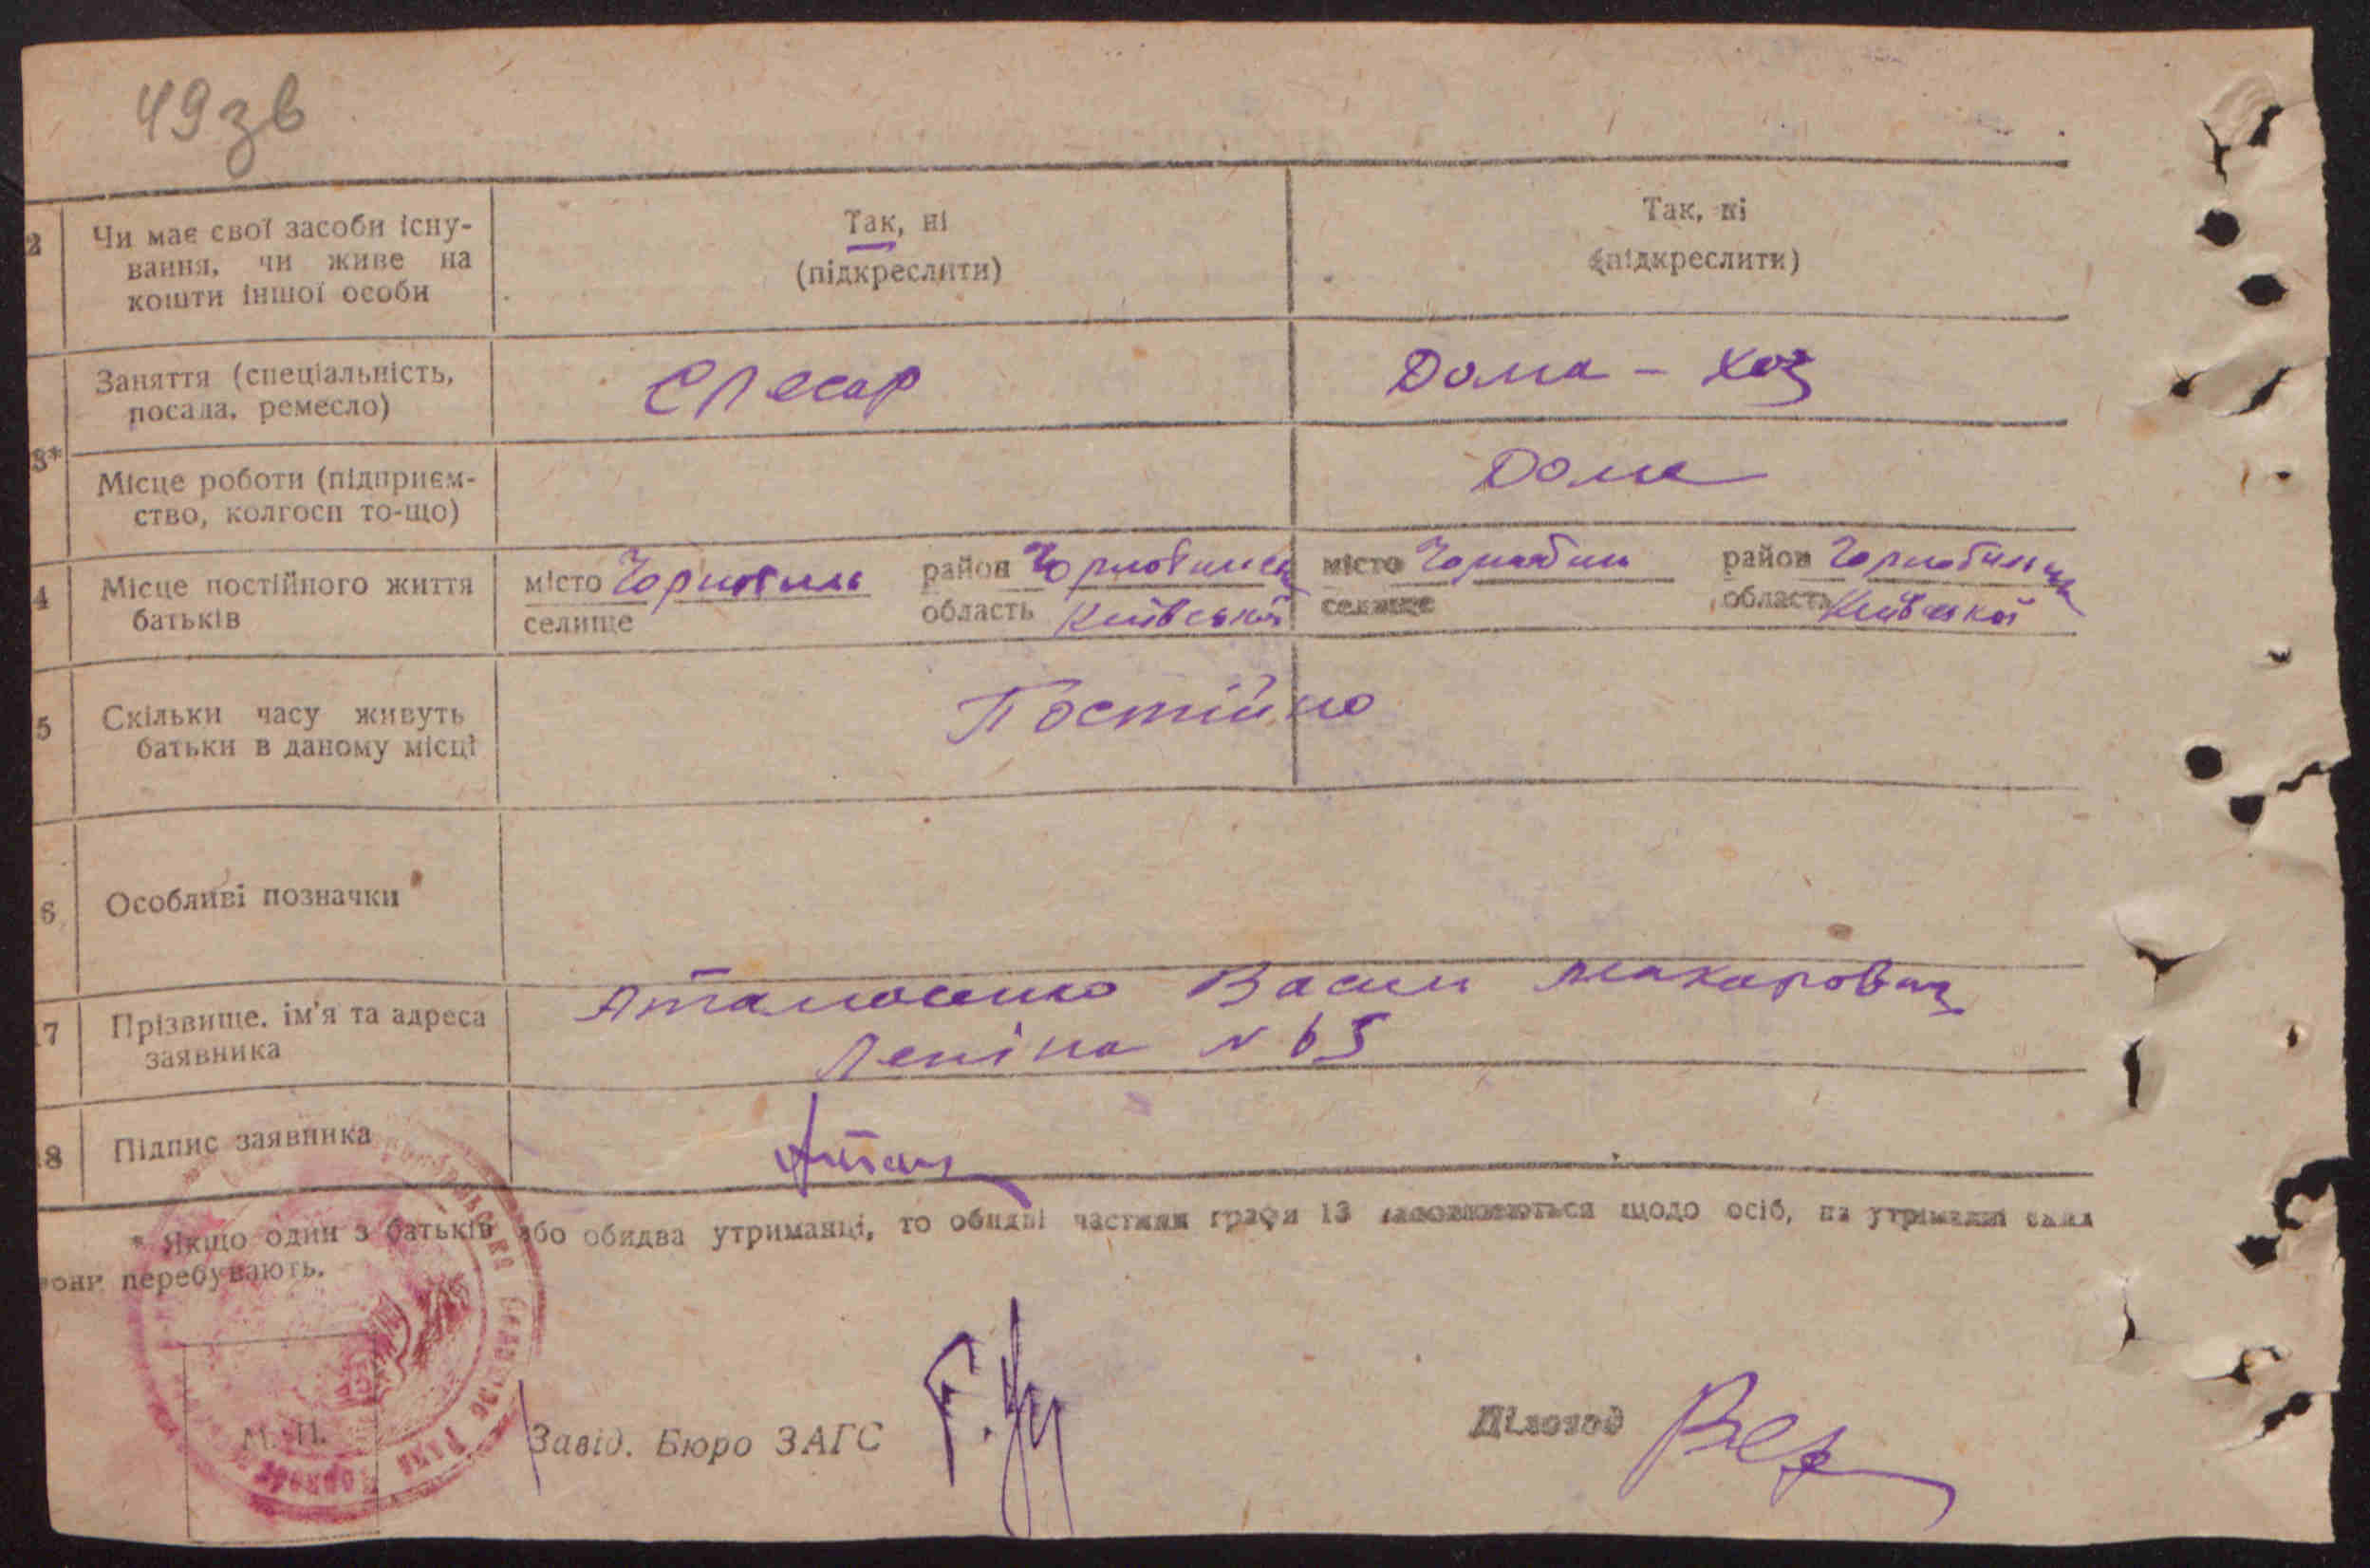 49зв
2 Чи має свої засоби існу-
вання, чи живе на
кошти іншої особи
Так, ні
(підкреслити)
Так, ні
(підкреслити)
Заняття (спеціальність,
посада, ремесло)
Слесар
Дома - хоз
3*
Місце роботи (підприєм-
ство, колгосп то-що)
Дома
4 Місце постійного життя
батьків
місто Чорнобиль
селище
район
область Київської
місто Чорнобиль
селище
район
область Київської
5 Скільки часу живуть
батьки в даному місці
Постійно
6 Особливі позначки
7 Прізвище, ім'я та адреса
заявника
Василь Макарович
Леніна № 65
8 Підпис заявника
* Якщо один з батьків або обидва утриманці, то обидві частини графи 13 заповнюються щодо осіб, на утриманні яких
вони перебувають.
М. П.
Завід. Бюро ЗАГС
Діловод